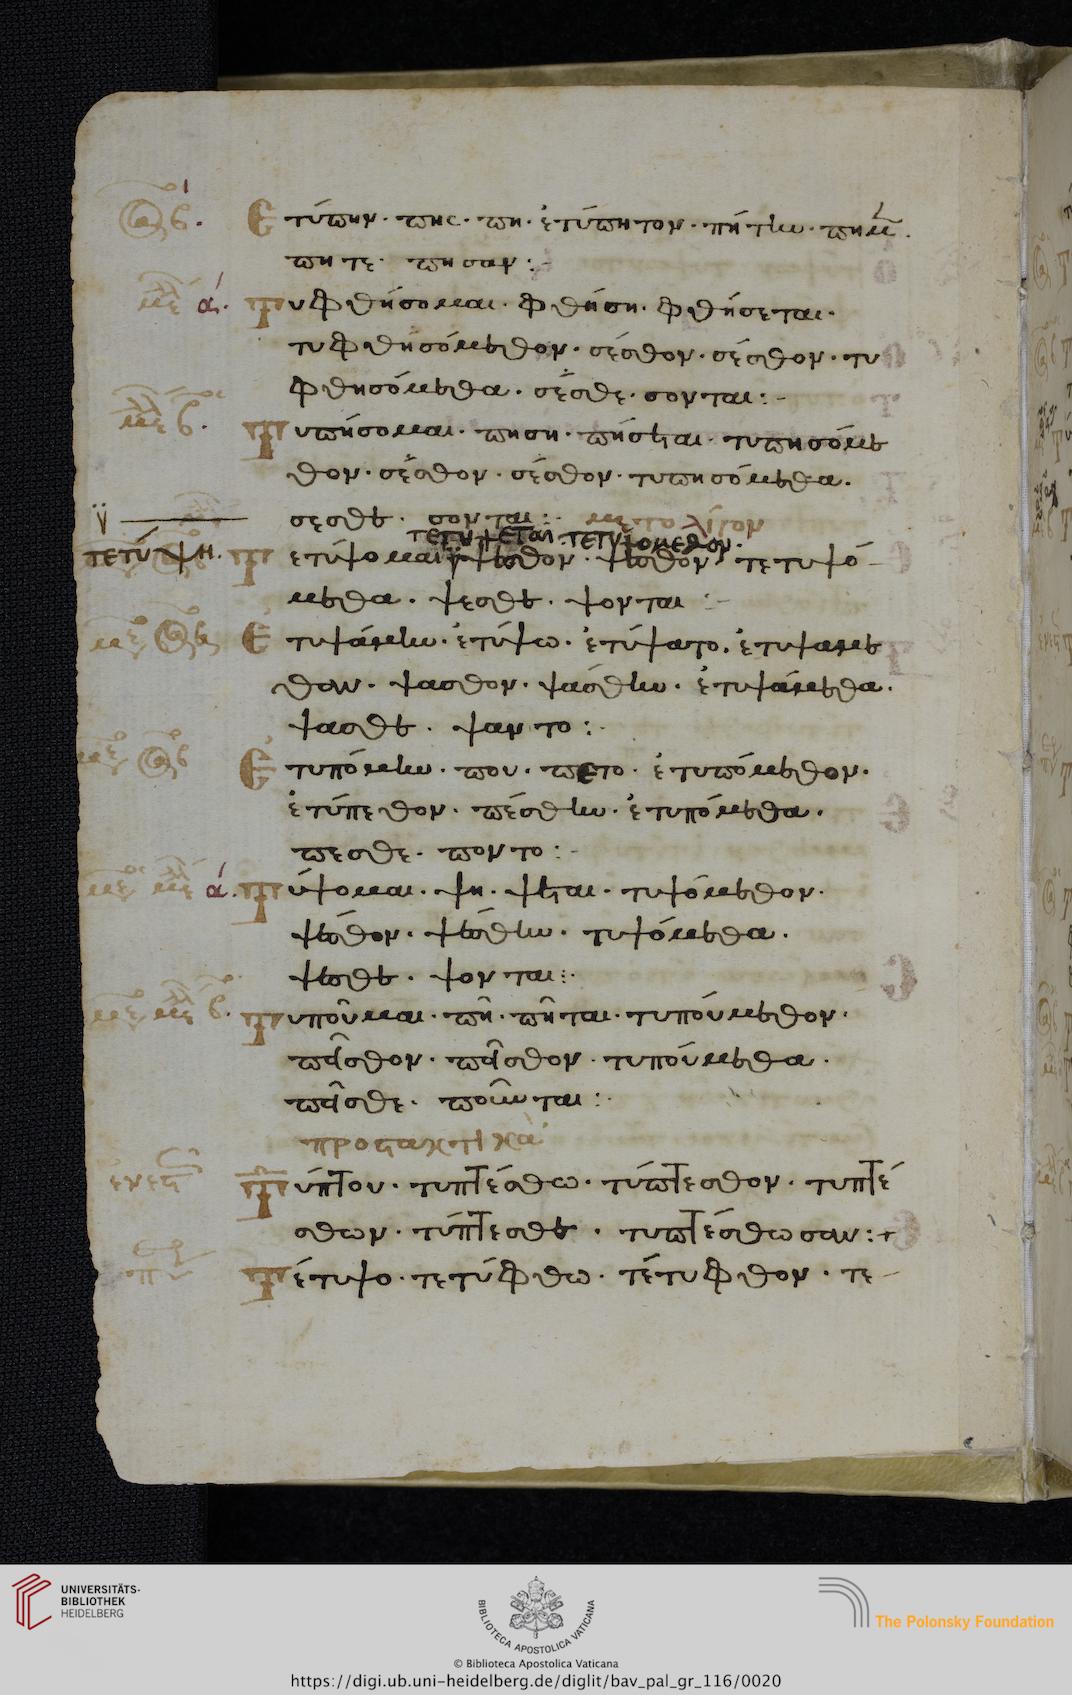 Ἐτύπην· πης· πη· ἐτύπητον· πήτην· πημ̅.
πητε· πησαν:-
α΄. Τυφθήσομαι· φθήση· φθήσεται·
τυφθησόμεθον· σέσθον· σέσθον· τυ
φθησόμεθα· σεσθε· σονται:-
β. Τυπήσομαι· πηση· πήσεται· τυπησόμε
θον· σεσθον· σεσθον· τυπησόμεθα.
σεσθε· σονται:- μετολίγον
τετύψεται τετυψόμεθον·
τετύψη. Τετύψομαι ψεσθον· ψεσθον· τετυψό-
μεθα· ψεσθε· ψονται:-
Ἐτυψάμην· ἐτύψω· ἐτύψατο· ἐτυψάμε
θον· ψασθον· ψάσθην· ἐτυψάμεθα.
ψασθε· ψαντο:-
Ἐτυπόμην· που· πετο· ἐτυπόμεθον·
ἐτύπεσθον· πέσθην· ἐτυπόμεθα.
πεσθε· ποντο:-
α΄. Τύψομαι· ψη· ψεται· τυψόμεθον·
ψεσθον· ψεσθην· τυψόμεθα.
ψεσθε· ψονται:·
β. Τυποῦμαι· πῆ· πῆται· τυπούμεθον·
πεῖσθον· πεῖσθον· τυπούμεθα.
πεῖσθε· ποῦνται:·
προστακτικὰ
Τύπτου· τυπτέσθω· τύπτεσθον· τυπτέ
σθων· τύπτεσθε· τυπτέσθωσαν:+
Τέτυψο· τετύφθω· τέτυφθον· τε-
UNIVERSITÄTS-
BIBLIOTHEK
HEIDELBERG
BIBLIOTECA APOSTOLICA VATICANA
The Polonsky Foundation
© Biblioteca Apostolica Vaticana
https://digi.ub.uni-heidelberg.de/diglit/bav_pal_gr_116/0020